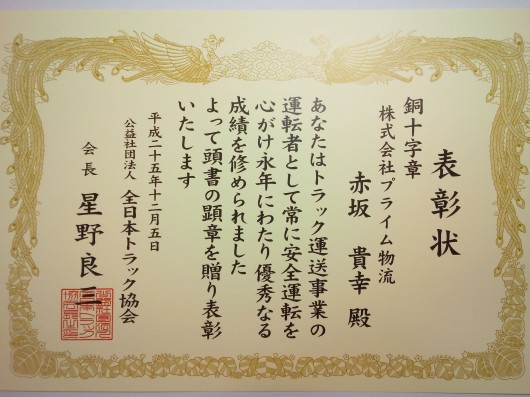 表彰状
銅十字章
株式会社プライム物流
赤坂 貴幸 殿
あなたはトラック運送事業の
運転者として常に安全運転を
心がけ永年にわたり優秀なる
成績を修められました
よって頭書の顕章を贈り表彰
いたします
平成二十五年十二月五日
公益社団法人 全日本トラック協会
会長 星野良三